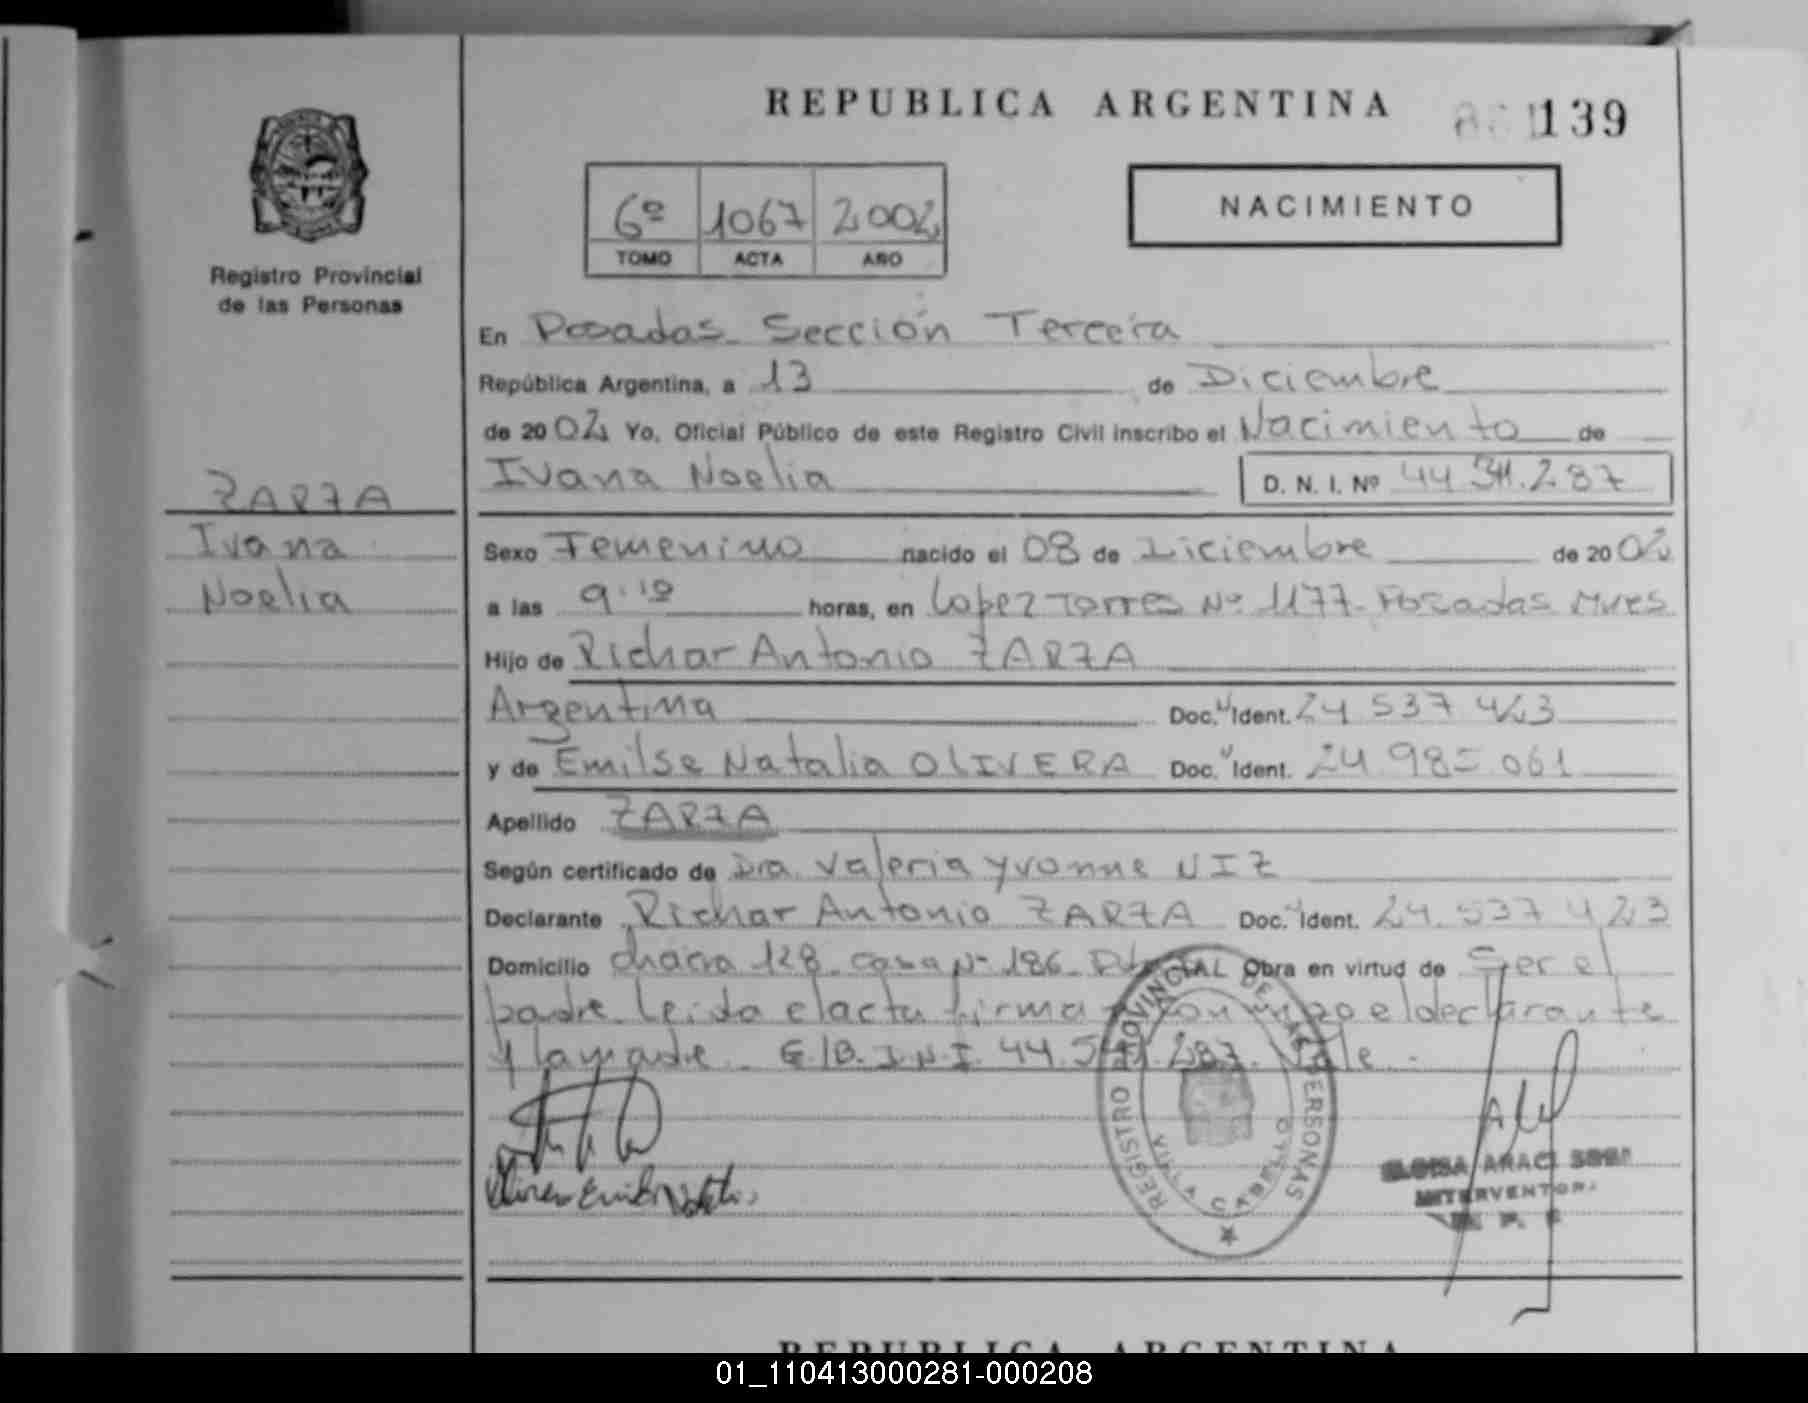 REPUBLICA ARGENTINA
139
Registro Provincial
de las Personas
6º 1067 2002
TOMO ACTA AÑO
NACIMIENTO
En Posadas Sección Tercera
República Argentina, a 13 de Diciembre
de 2002 Yo, Oficial Público de este Registro Civil inscribo el Nacimiento de
Ivana Noelia D. N. I. Nº 44.541.287
ZARZA
Ivana
Noelia
Sexo Femenino nacido el 08 de Diciembre de 2002
a las 9:10 horas, en Lopez Torres Nº 1177. Posadas Mnes
Hijo de Richar Antonio ZARZA
Argentina Doc. Ident. 24 537 423
y de Emilse Natalia OLIVERA Doc. Ident. 24 985 061
Apellido ZARZA
Según certificado de Dra. Valeria Yvonne NIZ
Declarante Richar Antonio ZARZA Doc. Ident. 24.537 423
Domicilio chacra 128. casa Nº 186. Obra en virtud de Ser el
padre. Leida el acta firma conmigo el declarante
y la madre. D.N.I. 44.541.287. Vale.
REGISTRO PROVINCIAL DE LAS PERSONAS
VILLA CABELLO
ELOISA ARACI
INTERVENTORA
REPUBLICA ARGENTINA
01_110413000281-000208